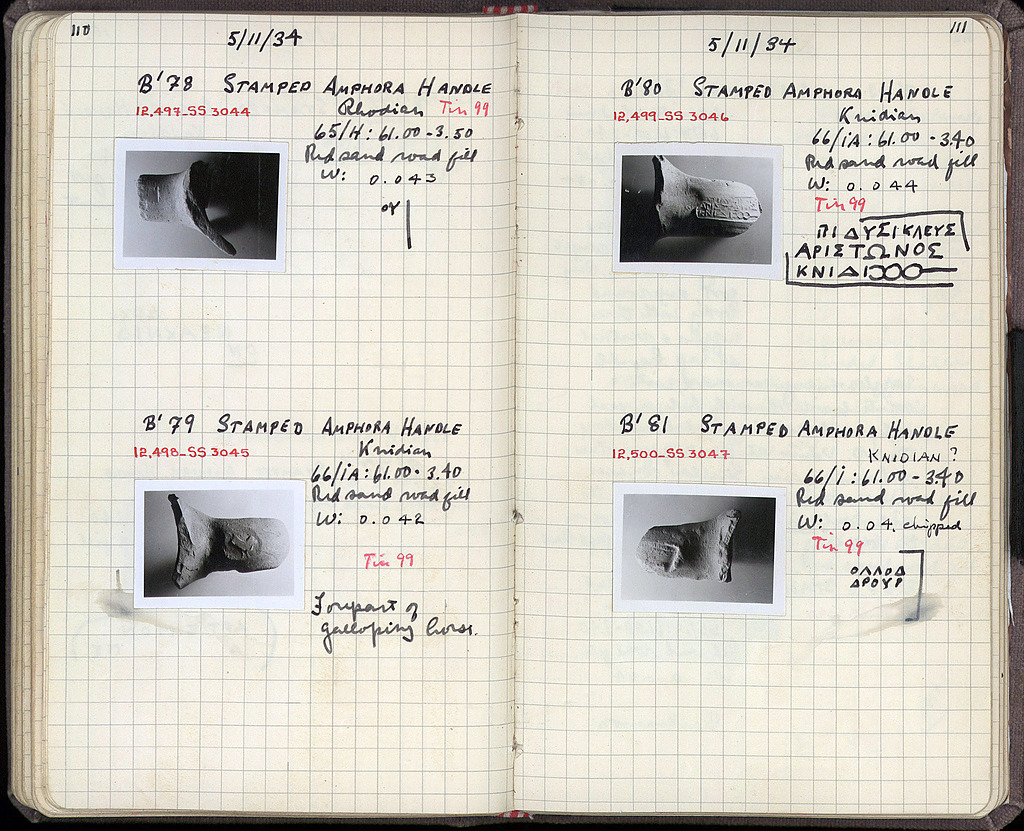 110
5/11/34
B'78 STAMPED AMPHORA HANDLE
12,497-SS 3044 Rhodian Tin 99
65/H: 61.00-3.50
Red sand road fill
W: 0.043
ογ
B'79 STAMPED AMPHORA HANDLE
12,498-SS 3045 Knidian
66/ΙΑ: 61.00-3.40
Red sand road fill
W: 0.042
Tin 99
Forepart of
galloping horse.
111
5/11/34
B'80 STAMPED AMPHORA HANDLE
12,499-SS 3046 Knidian
66/ΙΑ: 61.00-3.40
Red sand road fill
W: 0.044
Tin 99
ΠΙ ΔΥΣΙΚΛΕΥΣ
ΑΡΙΣΤΩΝΟΣ
ΚΝΙΔΙ
B'81 STAMPED AMPHORA HANDLE
12,500-SS 3047 KNIDIAN?
66/Ι: 61.00-3.40
Red sand road fill
W: 0.04, chipped
Tin 99
ΔΡΟΥΡ